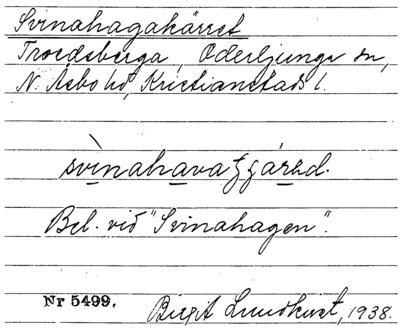 Svinahagakärret
Troedsberga, Oderljunga sn,
N. Åsbo hd, Kristianstads l.
svìnahava
Bel. vid "Svinahagen".
Nr 5499.
Birgit Lundkvist, 1938.